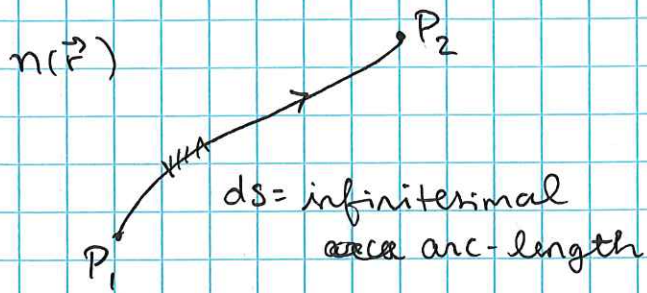 n(r⃗)
P₂
ds = infinitesimal
arc-length
P₁